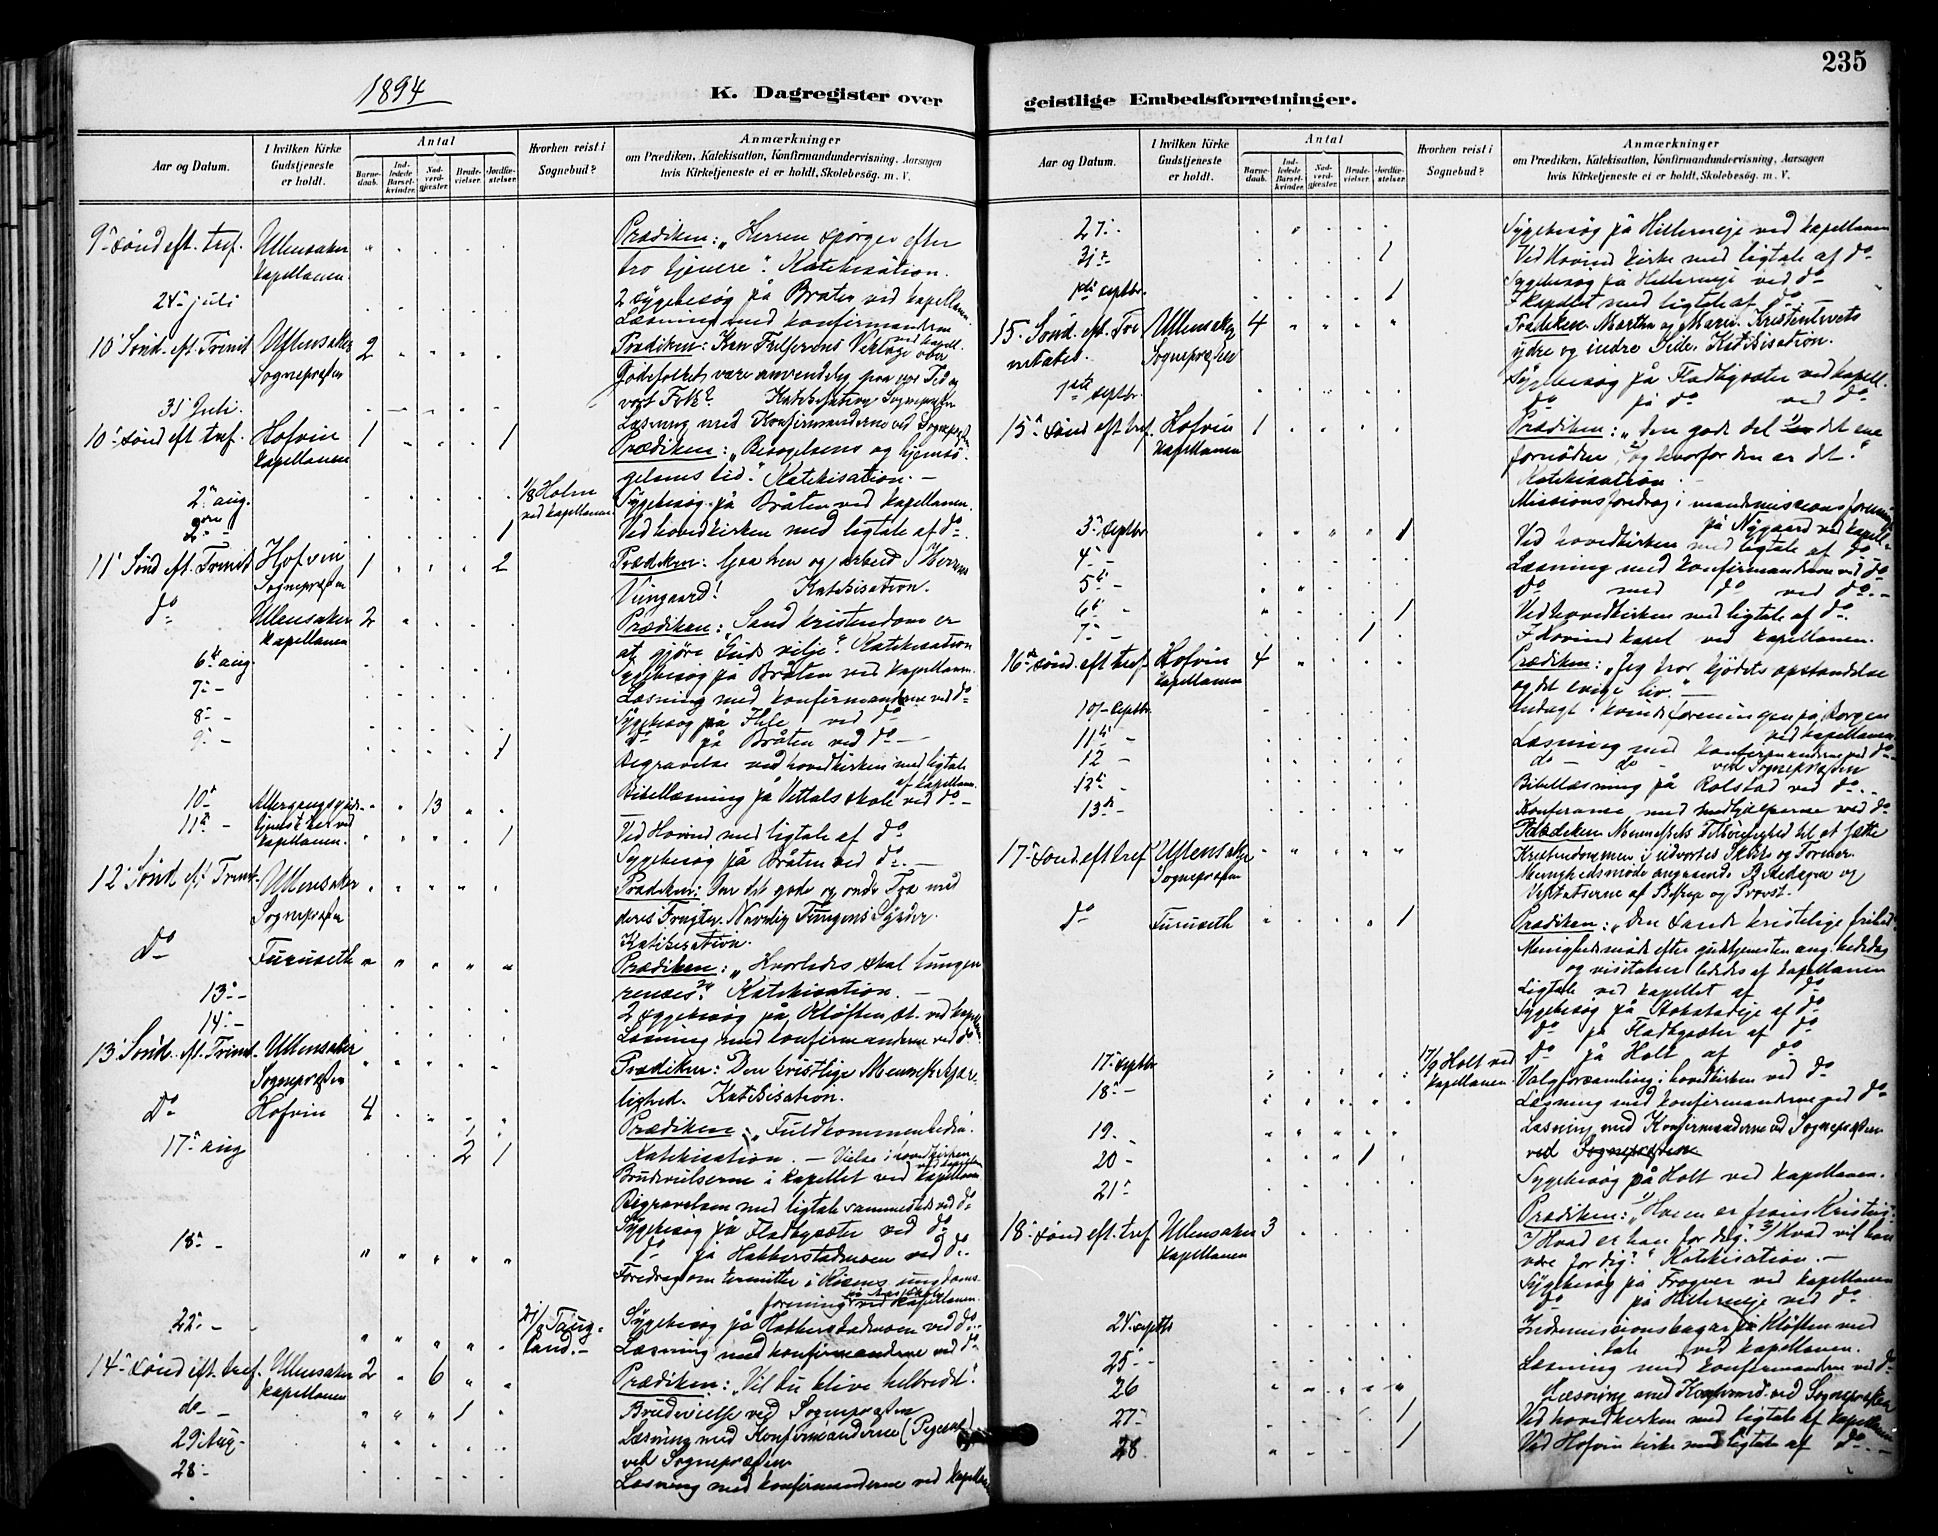 1894
K. Dagregister over
Aar og Datum.
I hvilken Kirke Gudstjeneste er holdt.
Antal
Barnedaab.
Indledede Barselkvinder.
Nadverdgjester.
Brudevielser.
Jordfæstelser.
Hvorhen reist i Sognebud?
Anmærkninger
om Prædiken, Katekisation, Konfirmandundervisning, Aarsagen
hvis Kirketjeneste ei er holdt, Skolebesøg. m. V.
9 sønd eft. tref. Ullensaker Prædiken: "Herren spørger efter
kapellanen. tro tjenere". Katekisation.
24 juli 2 sygebesøg på Bråten ved kapellanen.
Læsning med konfirmanderne
10 Sønd. eft. Trenit Ullensaker 2 Prædiken: Kan Frelserens Veklage over
Sognepræsten Jødefolket være anvendelig paa vor Tid og
vort Folk? Katekisation Sognepræsten
31 Juli. Læsning med Konfirmanderne ved Sognepræsten
10 sønd eft tref. Hofvin 1 1 Prædiken: "Besøgelsens og hjemsø-
kapellanen gelsens tid." Katekisation. -
2 aug. 1/8 Holm Sygebesøg på Bråten ved kapellanen.
ved kapellanen Ved hovedkirken med ligtale af do 1
11 Sønd eft. Trenit Hofvin 1 2 Prædiken: Gaa hen og arbeid i Herrens
Sognepræsten Viingaard! Katekisation.
do Ullensaker 2 Prædiken: "Sand kristendom er
kapellanen at gjøre Guds vilje". Katekisation
6 aug. Sygebesøg på Bråten ved kapellanen.
7 - Læsning med konfirmanderne ved do
8 - Sygebesøg på Ihle ved do
9 - do på Bråten ved do -
1 Begravelse ved hovedkirken med ligtale
af kapellanen.
10 Altergangsgud- 13 Bibellæsning på Vettals skole ved do -
11 - tjeneste ved
kapellanen. 1 Ved Hovind med ligtale af do
Sygebesøg på Bråten ved do. -
12 Sønd eft Trenit. Ullensaker Prædiken: Om det gode og onde Træ med
Sognepræsten deres Frugter. Navnlig Tungens Synder.
Katekisation.
Do Furuseth Prædiken: "Hvorledes skal tungen
renses?" Katekisation. -
13 - 2 sygebesøg på Kløften st. ved kapellanen
14 - Læsning med konfirmanderne ved do
13 Sønd. eft. Trenit. Ullensaker Prædiken: Den kristlige Menneskekjær-
Sognepræsten lighed. Katekisation.
Do Hofvin 4 Prædiken: "Fuldkommenhedin.
17 aug 2 1 Katekisation. - Vielse i hovedkirken
Brudevielserne i kapellet ved kapellanen
Begravelsen med ligtale sammesteds ved do
Sygebesøg på Fladbysæter ved do
18 - do på Hakkerstadmoen ved do.
Foredrag om termitter i Risens ungdoms-
forening ved kapellanen.
22 - 21/8 Taug- Sygebesøg på Hakkerstadmoen ved do.
land. - Læsning med konfirmanderne ved do
14 sønd eft. tref. Ullensaker 2 6 Prædiken: "Vil du blive helbredet".
kapellanen
do - 1 Brudevielse ved Sognepræsten
29 Aug. Læsning med Konfirmanderne
ved Sognepræsten
28 - Læsning med konfirmanderne ved kapellan
235
geistlige Embedsforretninger.
Aar og Datum.
I hvilken Kirke Gudstjeneste er holdt.
Antal
Barnedaab.
Indledede Barselkvinder.
Nadverdgjester.
Brudevielser.
Jordfæstelser.
Hvorhen reist i Sognebud?
Anmærkninger
om Prædiken, Katekisation, Konfirmandundervisning, Aarsagen
hvis Kirketjeneste ei er holdt, Skolebesøg. m. V.
27 - Sygebesøg på Hilterneje ved kapellanen
31 1 Ved Hovind kirke med ligtale af do
Sygebesøg på Hilterneje ved do
1ste septbr. 1 I kapellet med ligtale af do -
15. Sønd. eft. Tre- Ullensaker 4 Prædiken. Martha og Maria. Kristenlivets
nitatis. Sognepræsten ydre og indre Side. Katekisation.
1ste septbr. Sygebesøg på Fladbysæter ved kapell.
do på do ved do
15 sønd eft tref. Hofvin 1 Prædiken: "Den gode del det ene
kapellanen fornødne, og hvorfor den er det".
Katekisation. -
Missionsforedrag i mandsmissionsforening
på Nygaard ved kapell.
3 septbr. 1 Ved hovedkirken med ligtale af do -
4 - Læsning med konfirmanderne ved do
5 - do med do ved do -
6 - 1 Ved hovedkirken med ligtale af do
7 - 1 I Hovind kapel ved kapellanen.
16 sønd. eft tref. Hofvin 4 Prædiken: "Jeg tror kjødets opstandelse
kapellanen og det evige liv." -
10 - septbr. Andagt i kvindeforeningen på Borgen
ved kapellanen
11 - Læsning med konfirmanderne ved do
12 - do - do - ved Sognepræsten
12 Bibellæsning på Rolstad ved do -
13 - Konferanse med medhjelperne ved do
17 sønd. eft tref. Ullensaker Prædiken. Menneskets Tilbøielighed til at sætte
Sognepræsten Kristendommen i udvortes Skikke og Former.
Menighedsmøde angaaende Bededagen og
Visitatserne af Biskop og Provst.
do Furuseth 1 Prædiken: "Den sande kristelige frihed".
Menighedsmøde efter gudstjenesten ang. bededag
og visitatser lededes af kapellanen
Ligtale ved kapellet af do
Sygebesøg på Stokstadeje af do
do på Fladbysæter af do
17 septbr. 17/9 Holt ved do på Holt af do
kapellanen. Valgforsamling i hovedkirken ved do
18 - Læsning med konfirmanderne ved do
19 - Læsning med Konfirmanderne ved Sognepræsten
20 - 1 ved Sognepræsten
21 - Sygebesøg på Holt ved kapellanen.
18 sønd eft. tref Ullensaker 3 Prædiken: "Hvem er freis Kristus?
kapellanen 2) Hvad er han for dig? 3) Hvad vil han
være for dig?" Katekisation. -
Sygebesøg på Frogner ved kapellanen
do på Hilterneje ved do
24 septbr Indremissionsbazar på Kløften med
tale ved kapellanen.
25 - Læsning med konfirmanderne ved do
26 Læsning med Konfirmd. ved Sognepræsten
27 - 1 Ved hovedkirken med ligtale af kapellanen
28 1 Ved Hofvin kirke med ligtale af do -